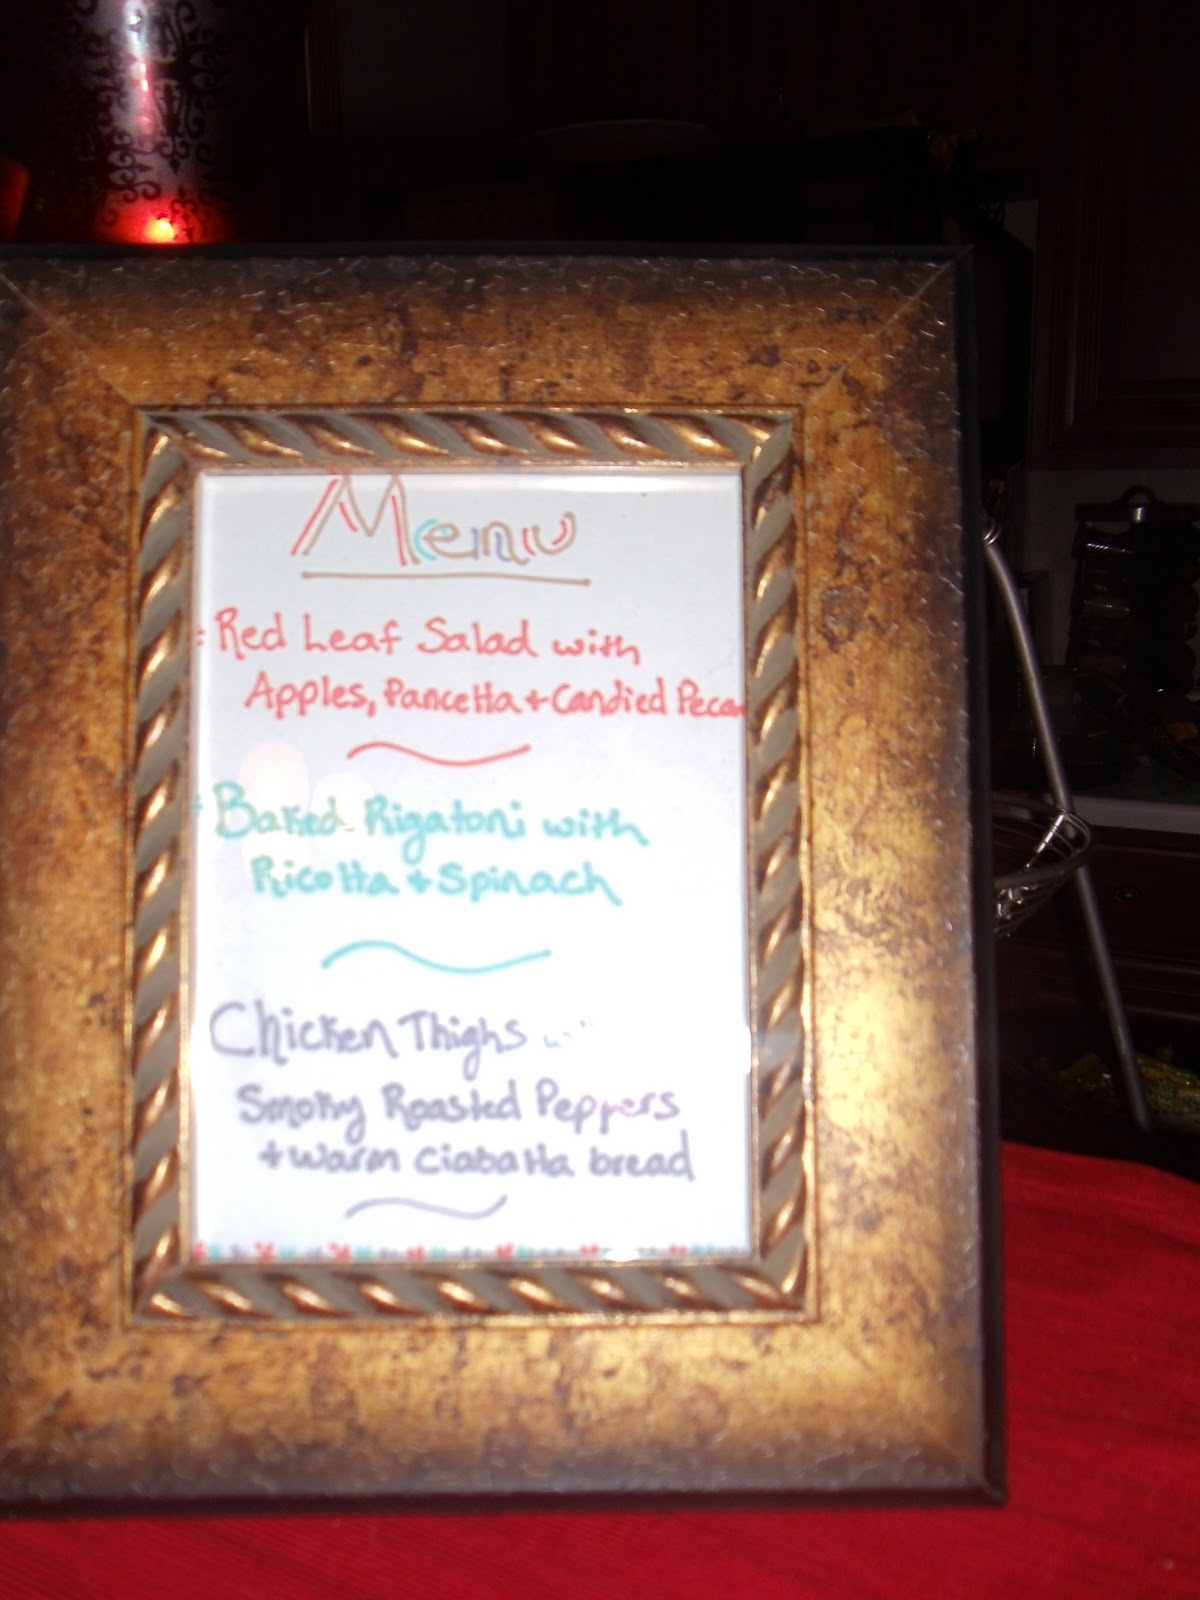 Menu
Red Leaf Salad with
Apples, Pancetta + Candied
Baked Rigatoni with
Ricotta + Spinach
Chicken Thighs
Smoky Roasted Peppers
+ warm ciabatta bread